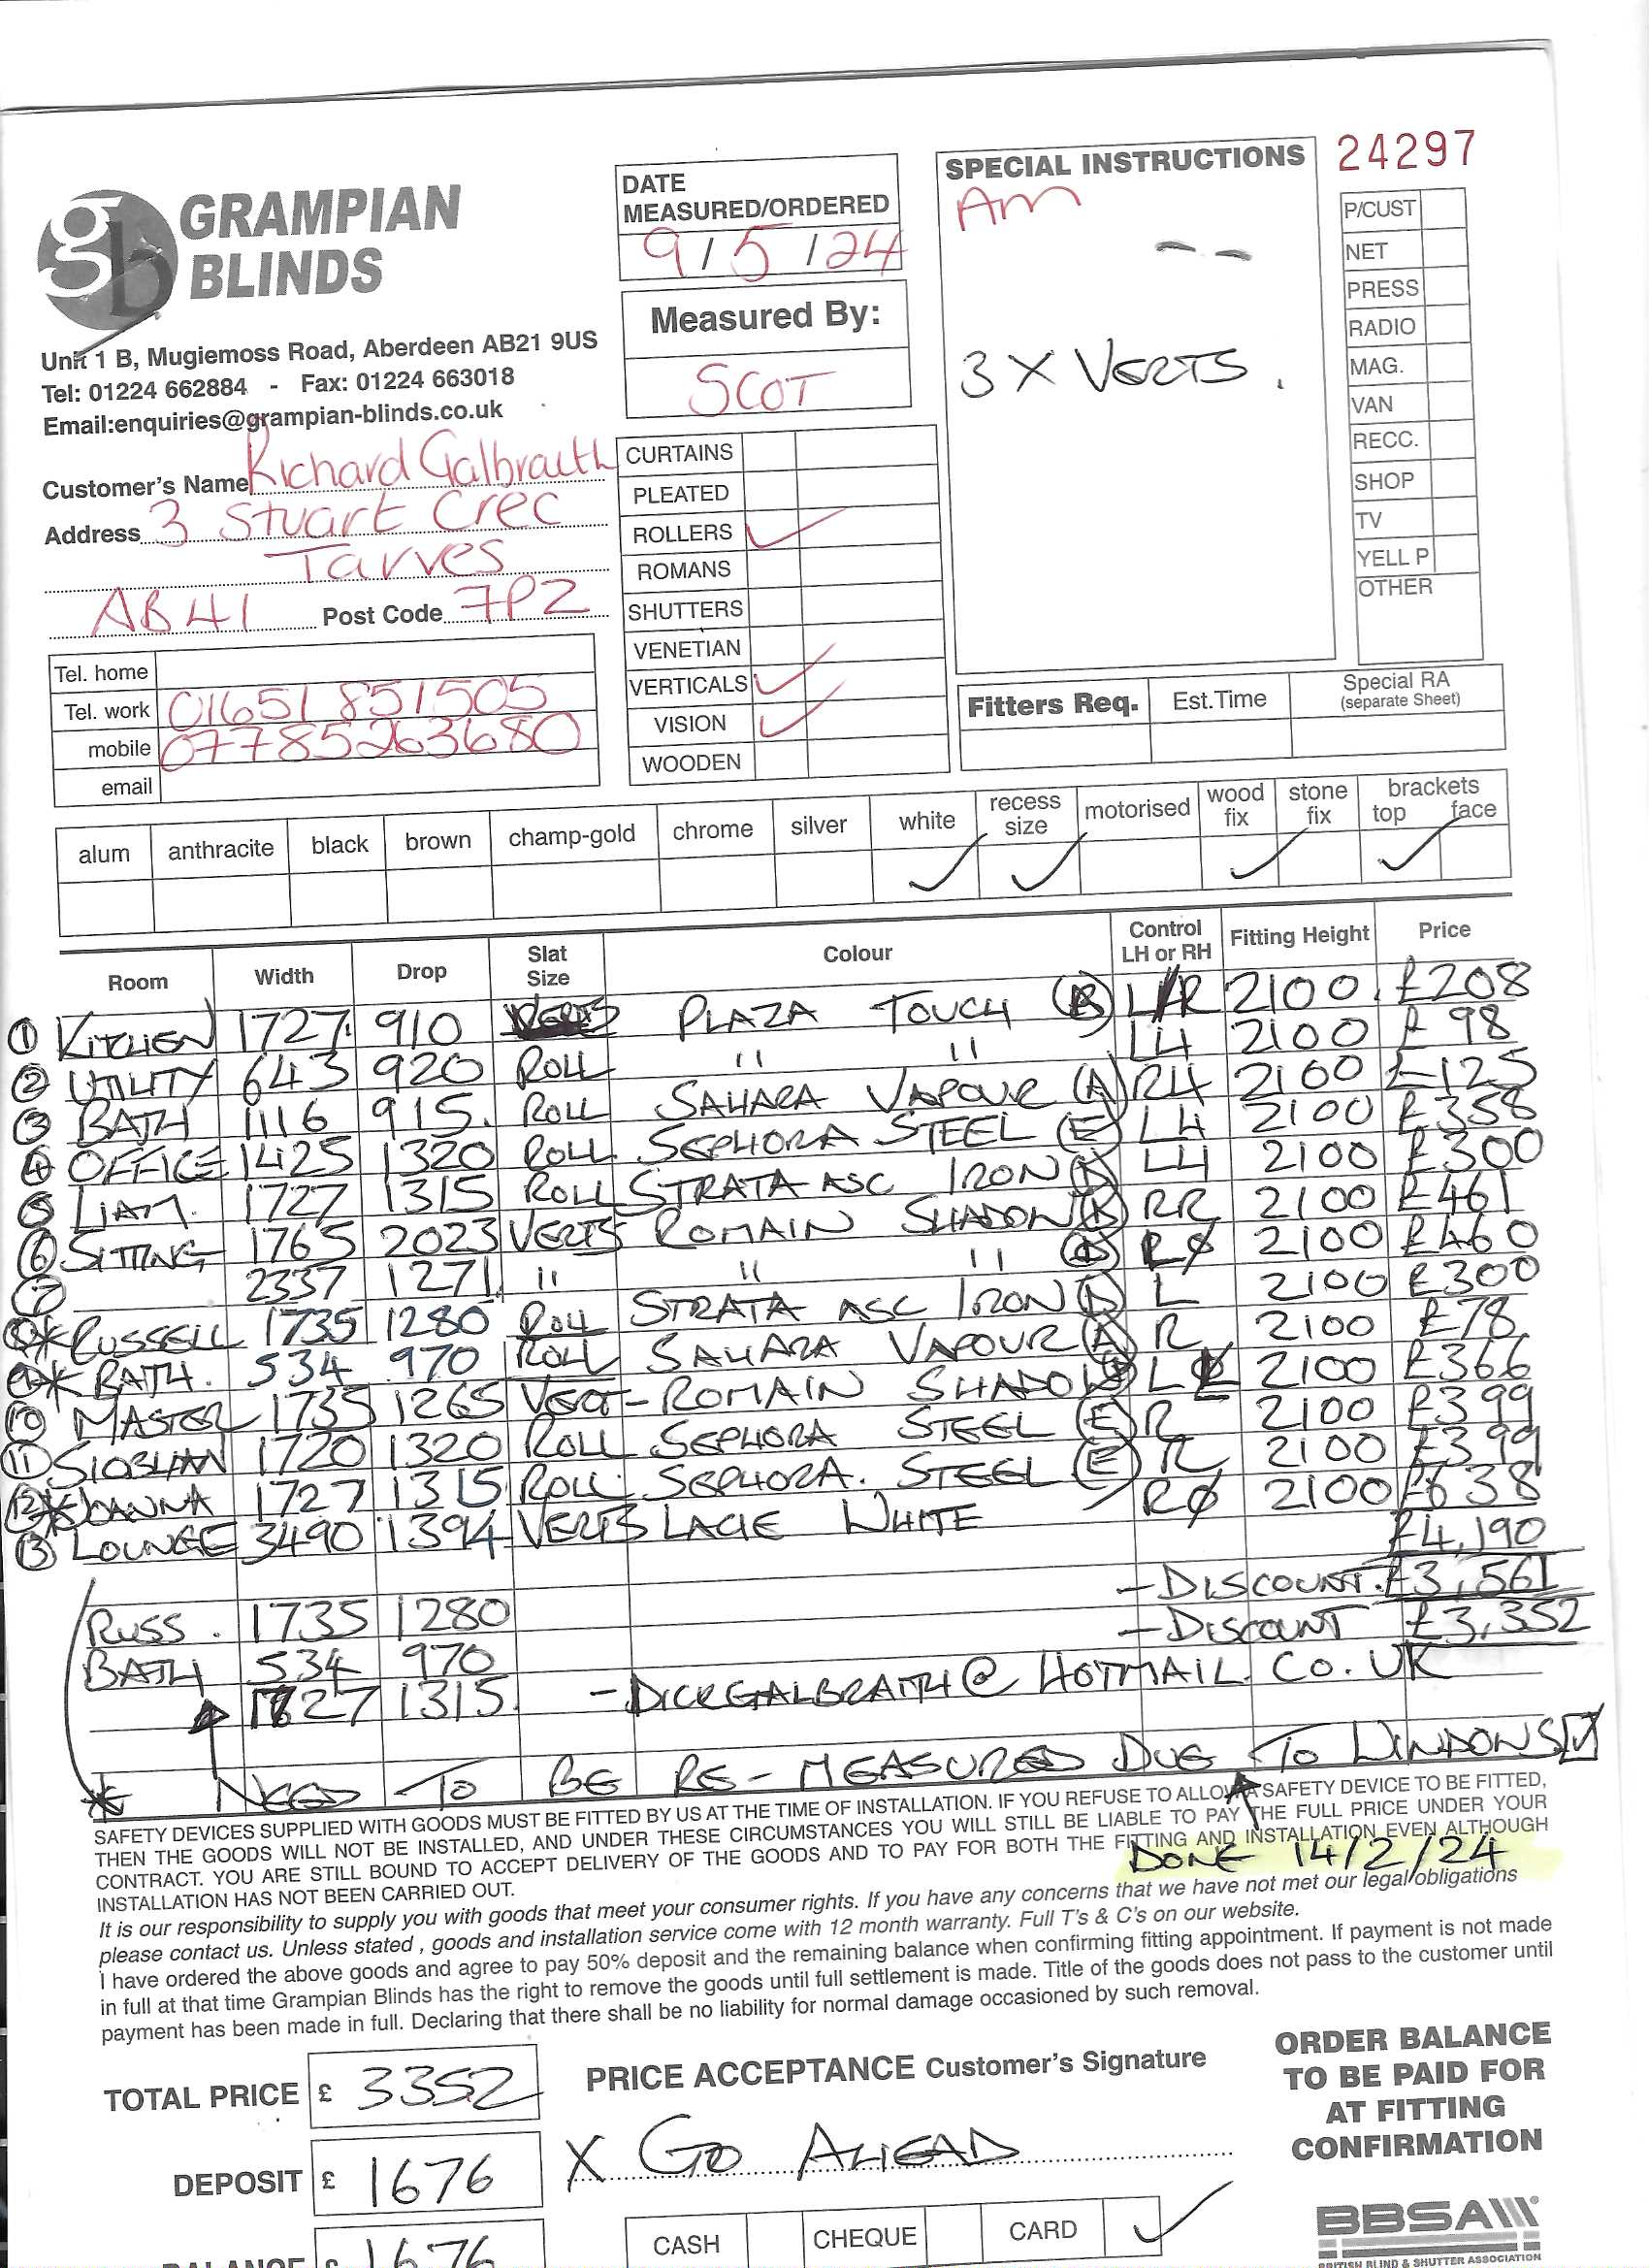 24297
GRAMPIAN
BLINDS
Unit 1 B, Mugiemoss Road, Aberdeen AB21 9US
Tel: 01224 662884 - Fax: 01224 663018
Email:enquiries@grampian-blinds.co.uk
Customer's Name Richard Galbraith
Address 3 Stuart Crec
Tarves
AB41 Post Code 7PZ
Tel. home
Tel. work 01651 851505
mobile 07785263680
email
DATE
MEASURED/ORDERED
9/5/24
Measured By:
SCOT
CURTAINS
PLEATED
ROLLERS ✓
ROMANS
SHUTTERS
VENETIAN
VERTICALS ✓
VISION ✓
WOODEN
SPECIAL INSTRUCTIONS
Am
3 X VERTS.
P/CUST
NET
PRESS
RADIO
MAG.
VAN
RECC.
SHOP
TV
YELL P
OTHER
Fitters Req. Est.Time Special RA
(separate Sheet)
alum anthracite black brown champ-gold chrome silver white recess size motorised wood fix stone fix brackets top face
✓ ✓ ✓ ✓
Room Width Drop Slat Size Colour Control LH or RH Fitting Height Price
① KITCHEN 1727 910 PLAZA TOUCH (B) 2100. £208
② UTILITY 643 920 ROLL " " LH 2100 £98
③ BATH 1116 915. ROLL SAHARA VAPOUR (A) RH 2100 £125
④ OFFICE 1425 1320 ROLL SEPHORA STEEL (E) LH 2100 £358
⑤ LIAM. 1727 1315 ROLL STRATA ASC IRON LH 2100 £300
⑥ SITTING 1765 2023 VERTS ROMAIN SHADOW RR 2100 £461
⑦ 2337 1271. " " " 2100 £460
⑧* RUSSELL 1735 1280 ROLL STRATA ASC IRON L 2100 £300
⑨* BATH. 534 970 ROLL SAHARA VAPOUR (A) R 2100 £78
⑩ MASTER 1735 1265 VERT - ROMAIN SHADOW L 2100 £366
⑪ SIOBHAN 1720 1320 ROLL SEPHORA STEEL (E) R 2100 £399
⑫* JOANNA 1727 1315 ROLL. SEPHORA. STEEL (E) R 2100 £399
⑬ LOUNGE 3490 1394 VERTS LACIE WHITE 2100 £638
£4,190
- DISCOUNT. £3,561
RUSS. 1735 1280 - DISCOUNT £3,352
BATH 534 970
1727 1315. - DICKGALBRAITH@HOTMAIL.CO.UK
* NEED TO BE RE-MEASURED DUE TO WINDOWS ✓
SAFETY DEVICES SUPPLIED WITH GOODS MUST BE FITTED BY US AT THE TIME OF INSTALLATION. IF YOU REFUSE TO ALLOW A SAFETY DEVICE TO BE FITTED,
THEN THE GOODS WILL NOT BE INSTALLED, AND UNDER THESE CIRCUMSTANCES YOU WILL STILL BE LIABLE TO PAY THE FULL PRICE UNDER YOUR
CONTRACT. YOU ARE STILL BOUND TO ACCEPT DELIVERY OF THE GOODS AND TO PAY FOR BOTH THE FITTING AND INSTALLATION EVEN ALTHOUGH
INSTALLATION HAS NOT BEEN CARRIED OUT.
DONE 14/2/24
It is our responsibility to supply you with goods that meet your consumer rights. If you have any concerns that we have not met our legal obligations
please contact us. Unless stated , goods and installation service come with 12 month warranty. Full T's & C's on our website.
I have ordered the above goods and agree to pay 50% deposit and the remaining balance when confirming fitting appointment. If payment is not made
in full at that time Grampian Blinds has the right to remove the goods until full settlement is made. Title of the goods does not pass to the customer until
payment has been made in full. Declaring that there shall be no liability for normal damage occasioned by such removal.
TOTAL PRICE £ 3352
DEPOSIT £ 1676
BALANCE £ 1676
PRICE ACCEPTANCE Customer's Signature
X GO AHEAD
CASH CHEQUE CARD ✓
ORDER BALANCE
TO BE PAID FOR
AT FITTING
CONFIRMATION
BBSA
BRITISH BLIND & SHUTTER ASSOCIATION